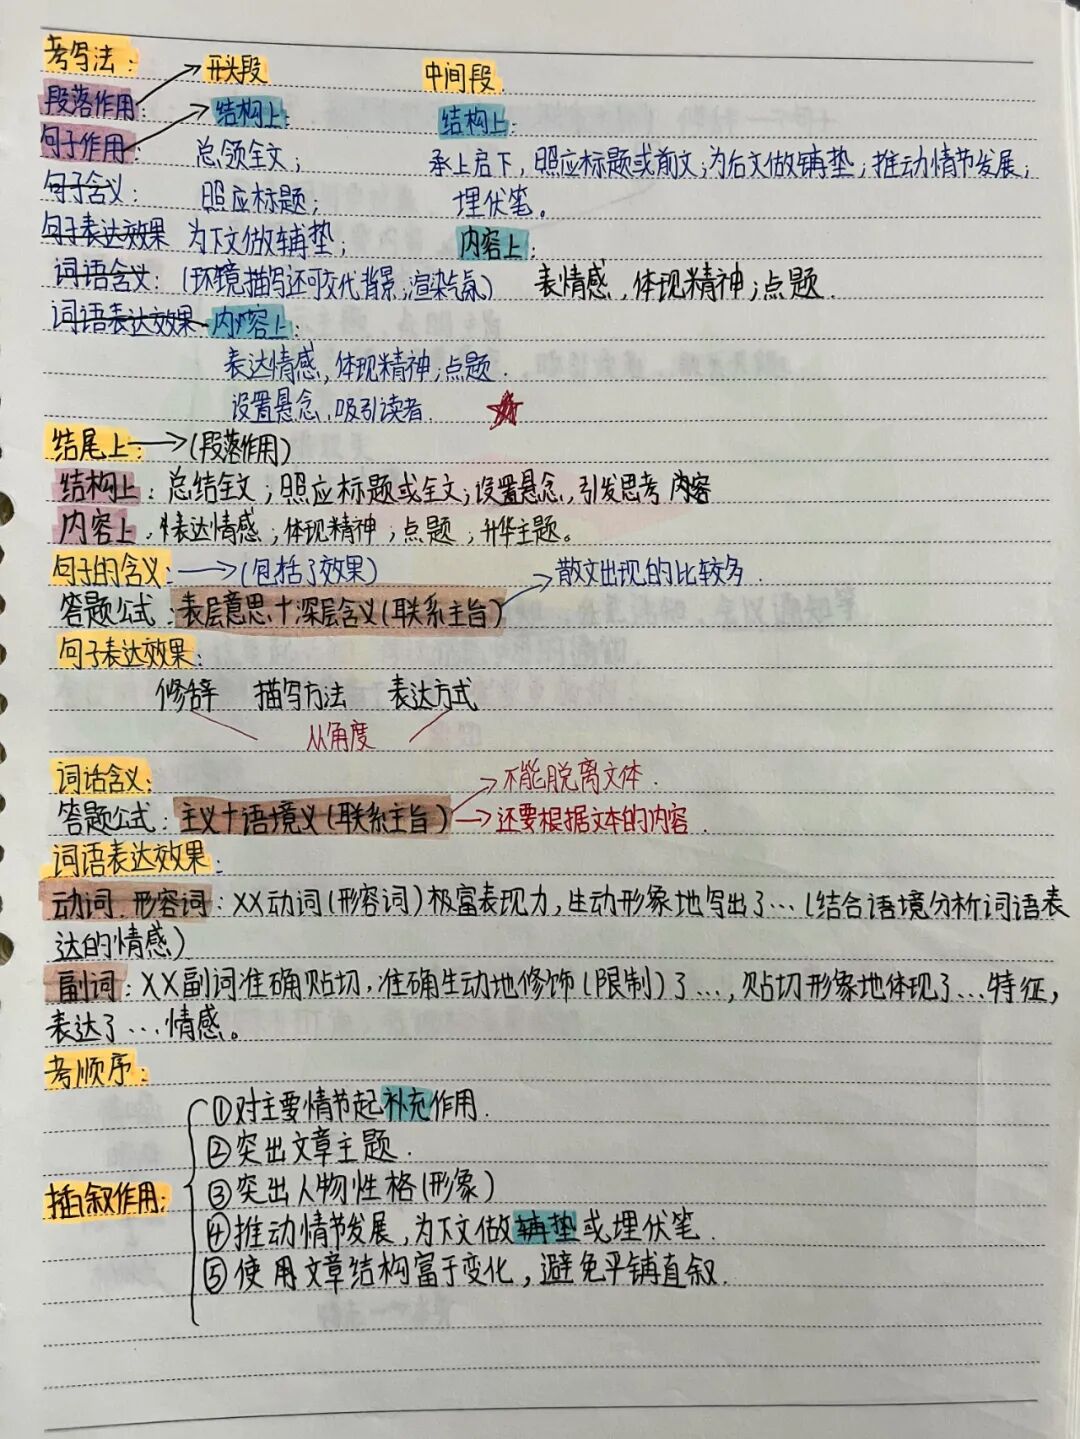 考写法：
开头段 中间段
段落作用： 结构上： 结构上：
句子作用： 总领全文； 承上启下，照应标题或前文；为后文做铺垫；推动情节发展；
句子含义： 照应标题； 埋伏笔。
句子表达效果 为下文做铺垫； 内容上：
词语含义：(环境描写还可交代背景；渲染气氛) 表情感，体现精神；点题.
词语表达效果 内容上：
表达情感，体现精神；点题.
设置悬念，吸引读者.
结尾上：→(段落作用)
结构上：总结全文；照应标题或全文；设置悬念，引发思考 内容
内容上，表达情感；体现精神；点题；升华主题。
句子的含义：→(包括了效果) 散文出现的比较多.
答题公式：表层意思+深层含义(联系主旨)
句子表达效果：
修辞 描写方法 表达方式
从角度
词语含义： 不能脱离文体.
答题公式：主义+语境义(联系主旨)→还要根据文本的内容.
词语表达效果：
动词.形容词：XX动词(形容词)极富表现力，生动形象地写出了…(结合语境分析词语表
达的情感)
副词：XX副词准确贴切，准确生动地修饰(限制)了…，贴切形象地体现了…特征，
表达了…情感。
考顺序：
①对主要情节起补充作用.
②突出文章主题.
插叙作用： ③突出人物性格(形象)
④推动情节发展，为下文做铺垫或埋伏笔.
⑤使用文章结构富于变化，避免平铺直叙.